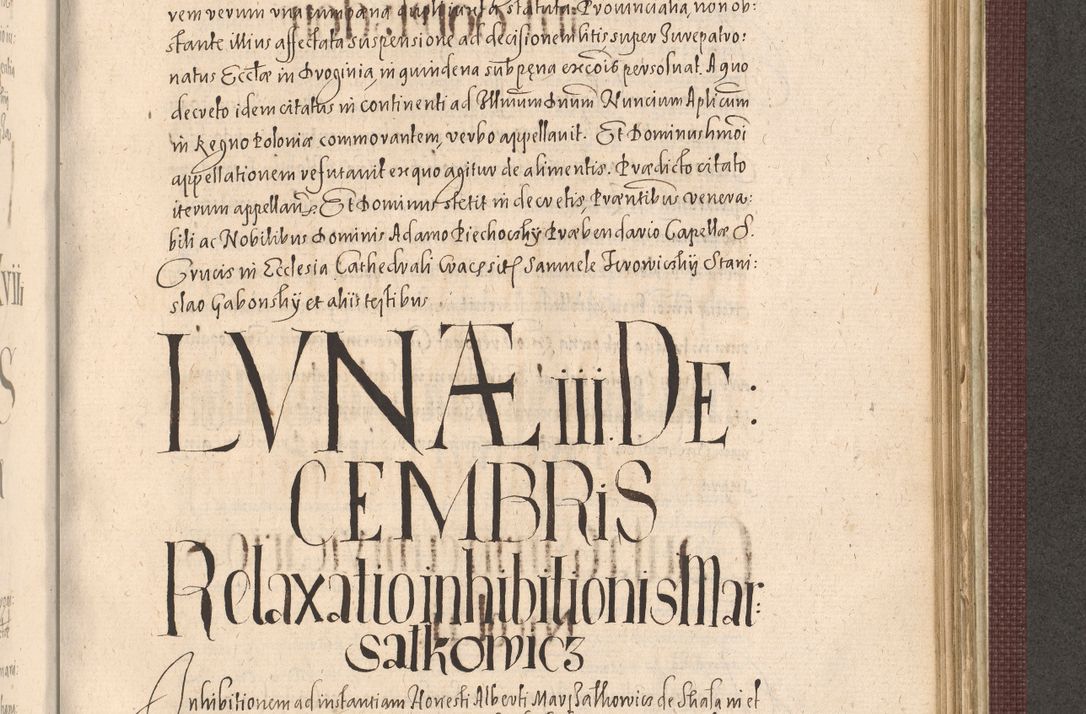 rem verum una cum pœna dupli juxta statuta Provincialia, non ob:
stante illius affectata suspensione ad decisionem litis super Jurepatro:
natus Eccłæ in Proginia, in quindena sub pęna excõis persoluat. A quo
decreto idem citatus in continenti ad Illmum Dnum Nuncium Aplicum
in Regno Poloniæ commorantem, verbo appellauit. Et Dominus hmõi
appellationem refutauit ex quo agitur de alimentis. Prædicto citato
iterum appellan. Et Dominus stetit in decretis, Præntibus venera:
bili ac Nobilibus Dominis Adamo Piechocshÿ Præbendario Capellæ S.
Crucis in Ecclesia Cathedrali Crac sit Samuele Jurowicshÿ Stani:
slao Gabonshÿ et aliis testibus
LVNÆ iiii. DE:
CEMBRiS
Relaxatio inhibitionis Mar:
sałkowicz
Inhibitionem ad instantiam Honesti Alberti Marszałkowicz de Skala in et